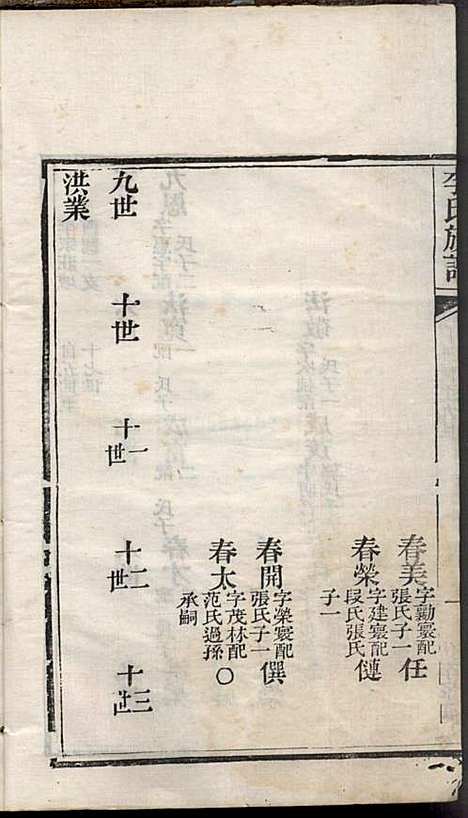 李氏族譜
春美字勷寰配張氏子一 任
春榮字建寰配段氏張氏子一 僆
春開字榮寰配張氏子一 僎
春太字茂林配范氏過孫承嗣 〇
九世 十世 十一世 十二世 十三世
洪業